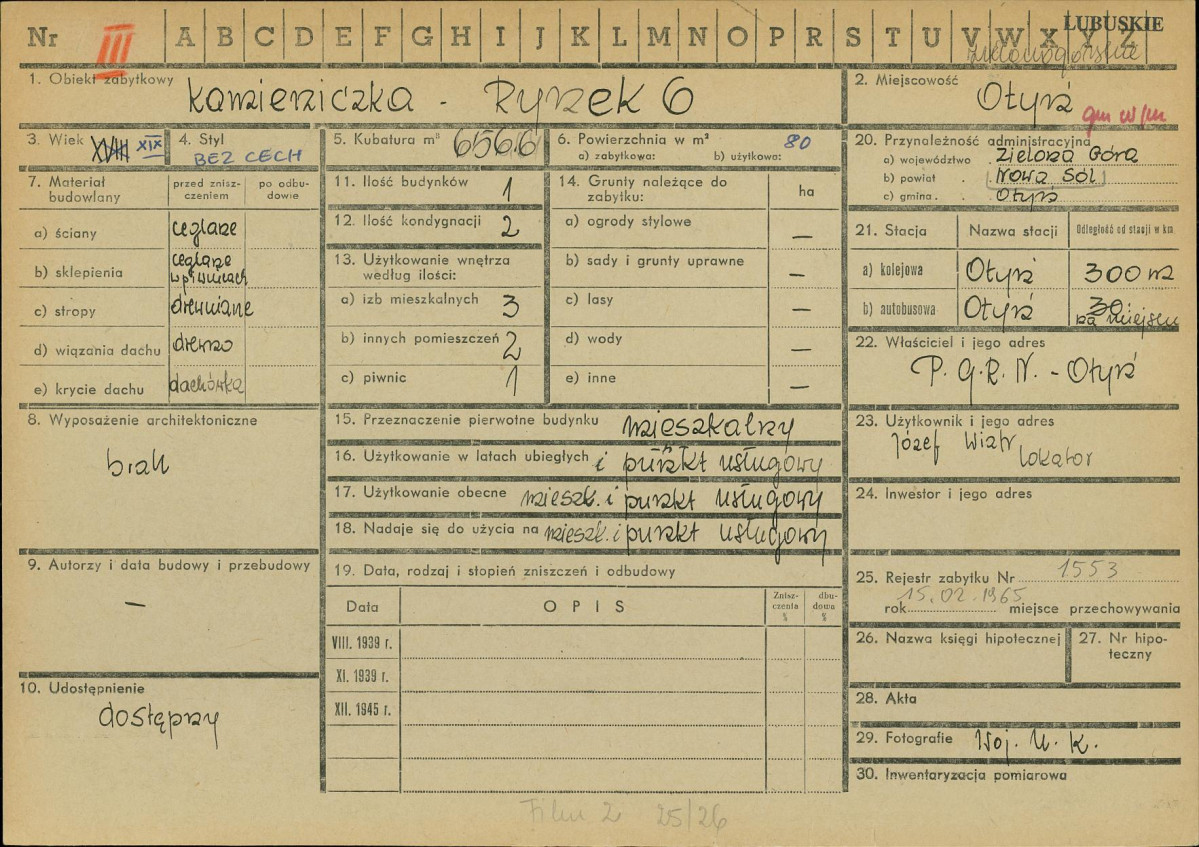 Nr III A B C D E F G H I J K L M N O P R S T U V W X Y Z LUBUSKIE
zielonogórskie
1. Obiekt zabytkowy
Kamieniczka - Rynek 6
2. Miejscowość
Otyń
gm w/m
3. Wiek XVIII XIX
4. Styl
BEZ CECH
5. Kubatura m³ 656.6
6. Powierzchnia w m² 80
a) zabytkowa: b) użytkowa:
20. Przynależność administracyjna
a) województwo Zielona Góra
b) powiat . Nowa Sól
c) gmina . Otyń
7. Materiał budowlany
przed znisz-
czeniem
po odbu-
dowie
a) ściany ceglane
b) sklepienia ceglane
w piwnicach
c) stropy drewniane
d) wiązania dachu drewno
e) krycie dachu dachówka
11. Ilość budynków 1
12. Ilość kondygnacji 2
13. Użytkowanie wnętrza
według ilości:
a) izb mieszkalnych 3
b) innych pomieszczeń 2
c) piwnic 1
14. Grunty należące do
zabytku:
ha
a) ogrody stylowe —
b) sady i grunty uprawne —
c) lasy —
d) wody —
e) inne —
21. Stacja Nazwa stacji Odległość od stacji w km
a) kolejowa Otyń 300 m
b) autobusowa Otyń 30
na miejscu
22. Właściciel i jego adres
P. G. R. N. - Otyń
8. Wyposażenie architektoniczne
brak
15. Przeznaczenie pierwotne budynku mieszkalny
16. Użytkowanie w latach ubiegłych i punkt usługowy
17. Użytkowanie obecne mieszk. i punkt usługowy
18. Nadaje się do użycia na mieszk. i punkt usługowy
23. Użytkownik i jego adres
Józef Wiatr
lokator
24. Inwestor i jego adres
9. Autorzy i data budowy i przebudowy
—
19. Data, rodzaj i stopień zniszczeń i odbudowy
Data OPIS
Znisz-
czenia
%
dbu-
dowa
%
VIII. 1939 r.
XI. 1939 r.
XII. 1945 r.
25. Rejestr zabytku Nr 1553
15.02.1965
rok miejsce przechowywania
26. Nazwa księgi hipotecznej
27. Nr hipo-
teczny
10. Udostępnienie
dostępny
28. Akta
29. Fotografie Woj. U. K.
30. Inwentaryzacja pomiarowa
Film 2 25/26